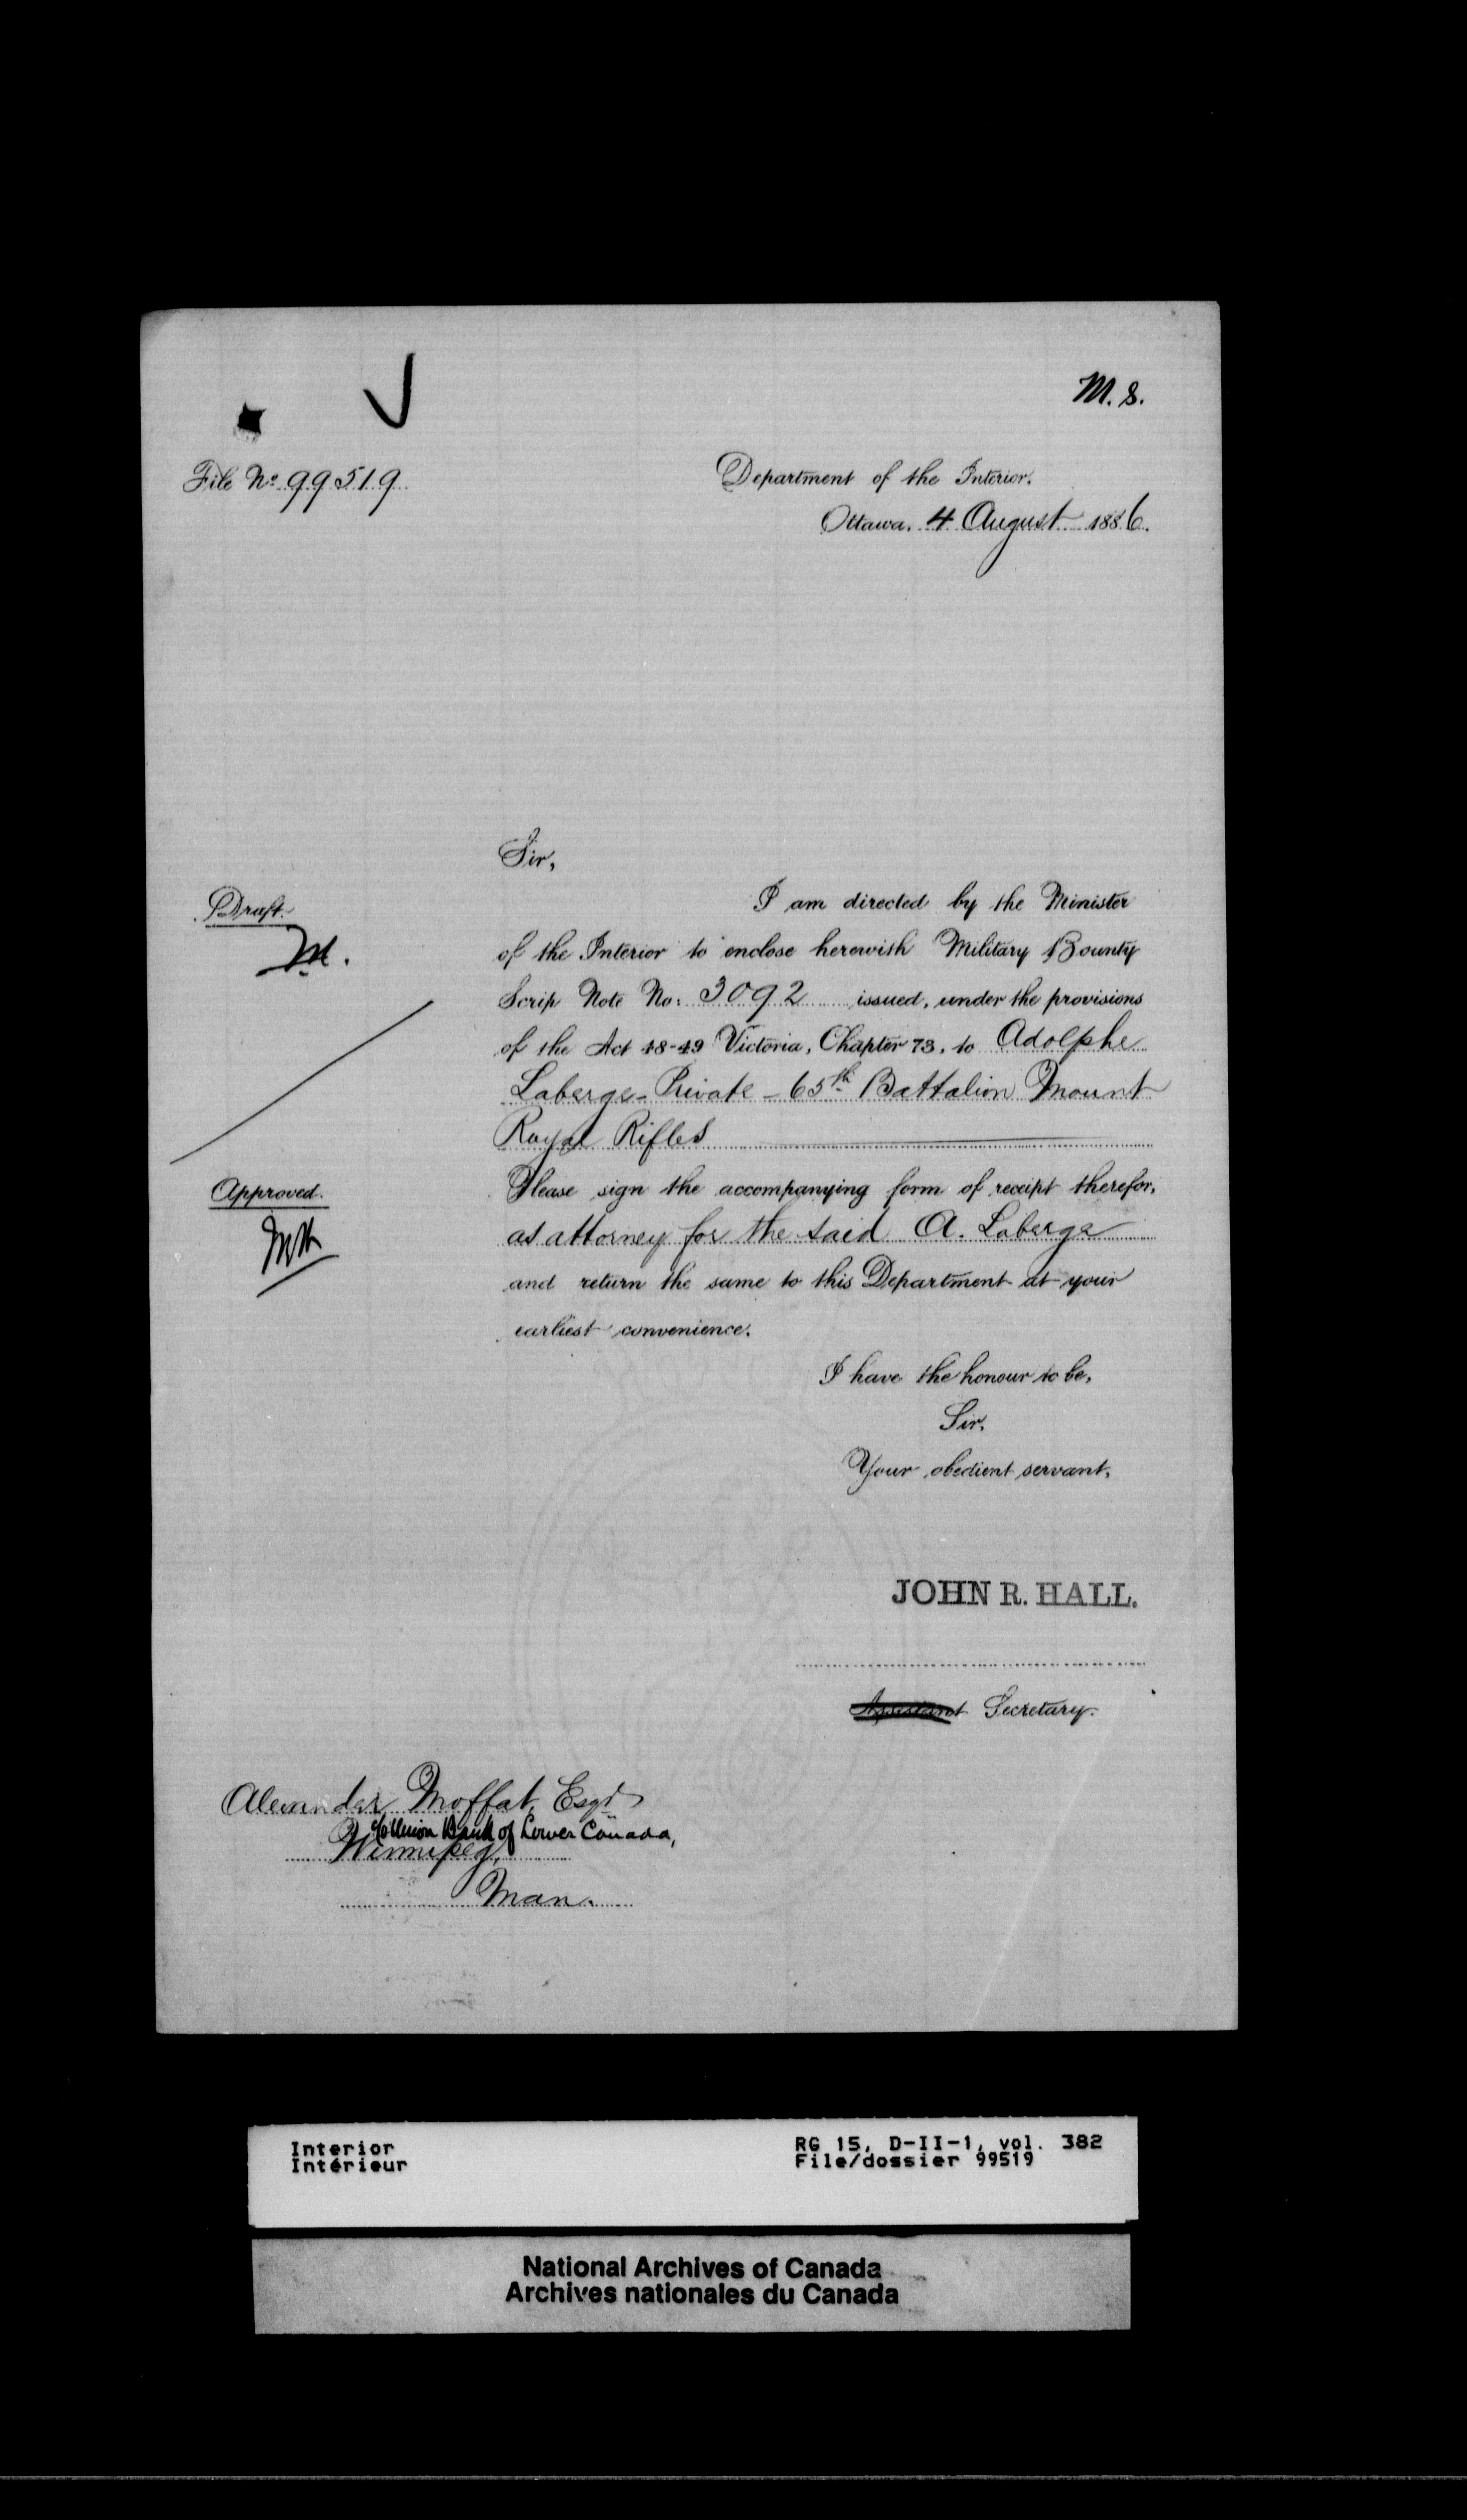 M. S.
File No 99519
Department of the Interior.
Ottawa, 4 August 1886.
Sir,
I am directed by the Minister
of the Interior to enclose herewith Military Bounty
Scrip Note No: 3092 issued, under the provisions
of the Act 48-49 Victoria, Chapter 73, to Adolphe
Laberge - Private - 65th Battalion Mount
Royal Rifles
Please sign the accompanying form of receipt therefor,
as attorney for the said A. Laberge
and return the same to this Department at your
earliest convenience.
Draft.
M.
Approved.
I have the honour to be,
Sir,
Your obedient servant,
JOHN R. HALL.
Assistant Secretary.
Alexander Moffat, Esqr
c/o Union Bank of Lower Canada,
Winnipeg,
Man.
Interior
Intérieur
RG 15, D-II-1, vol. 382
File/dossier 99519
National Archives of Canada
Archives nationales du Canada